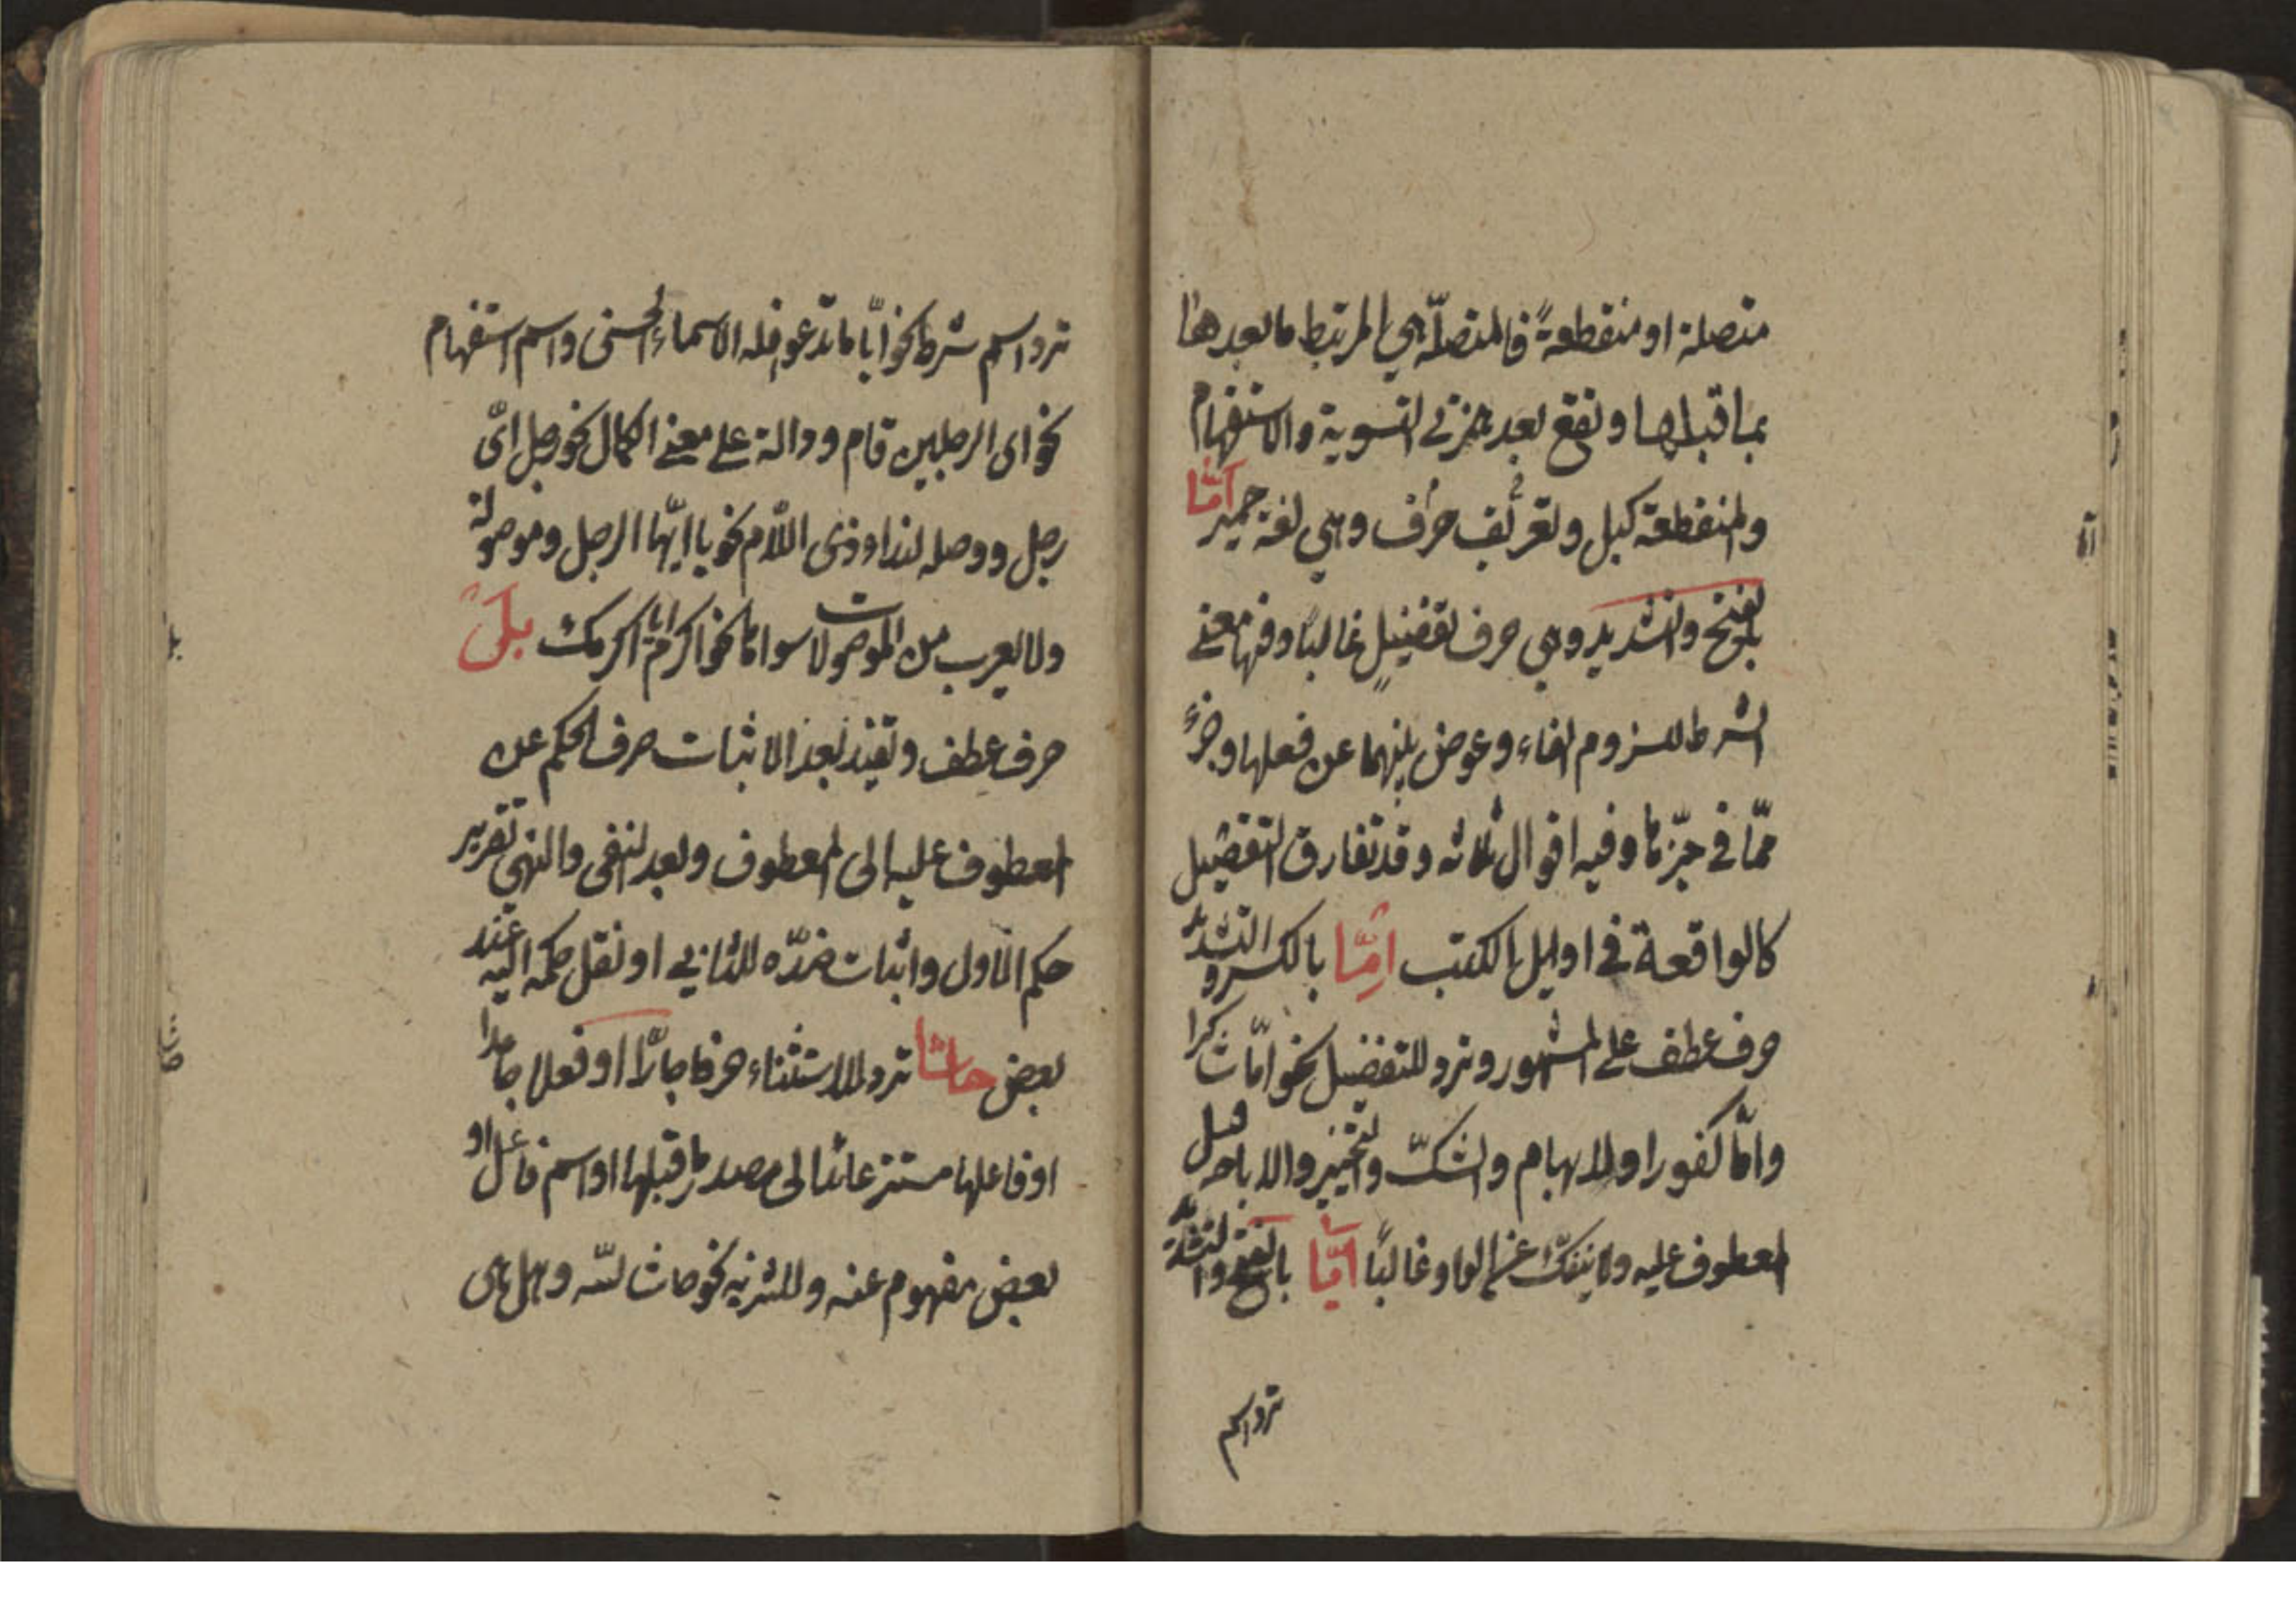 متصلة او منقطعةً فالمتصلّة هي المرتبط ما بعدها
بما قبلها وتقع بعد همزتي التسوية والاستفهام
والمنقطعة كبل ولتعريف حرف وهي لغة حمير امّا
بالفتح والتشديد وهي حرف تفضيل غالبًا وفيها معنى
الشرط للزوم الفاء وعوض بينهما عن فعلها وجزء
ممّا في حيّزها وفيه اقوال ثلاثه وقد تفارق التفضيل
كالواقعة في اوايل الكتب امّا بالكسر والتشديد
حرف عطف على المشهور وترد للتفضيل نحو امّا شاكرا
وامّا كفورا وللابهام والشكّ والتخيير والاباحه قبل
المعطوف عليه ولا ينفكّ عن الواو غالبًا ايّا بالفتح والتشديد
ترد اسم
ترد اسم شرط نحو ايّا ما تدعو فله الاسماء الحسنى واسم استفهام
نحو اى الرجلين قام ودالة على معنى الكمال نحو رجل اىّ
رجل ووصله لنداء ذى اللام نحو يا ايّها الرجل وموصولة
ولا يعرب من الموصولات سواها نحو اكرم ايا اكرمك بل
حرف عطف وتفيد بعد الاثبات صرف الحكم عن
المعطوف عليه الى المعطوف وبعد النفى والنهى تقرير
حكم الاول واثبات ضدّه للثاني او نقل حكمه اليه عند
بعض حاشا ترد للاستثناء حرفا جارّا او فعلا جامدا
او فاعلها مستتر عائد الى مصدر ما قبلها او اسم فاعل او
بعض مفهوم عنه وللتنزيه نحو حاش لله وهل هى